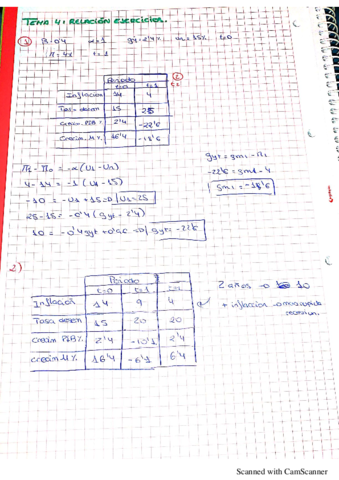 TEMA 4: RELACIÓN EJERCICIOS.
1) β=0'4 α=1 gy=2'4% un=15%
t=1
Periodo
t=0 t=1
Inflación 14 4
Tasa desem 15 25
Crecim. PIB% 2'4 -22'6
Crecim M% 16'4 -18'6
π1 - π0 = -α(u1 - un)
4 - 14 = -1(u1 - 15)
-10 = -u1 + 15 => u1 = 25
25 - 15 = -0'4(gyt - 2'4)
10 = -0'4gyt + 0'96 => gyt = -22'6
gyt = gm1 - π1
-22'6 = gm1 - 4
gm1 = -18'6
2)
Periodo
t=0 t=1
Inflación 14 9 4
Tasa desem 15 20 20
Crecim PIB% 2'4 -10'1 2'4
Crecim M% 16'4 -6'1 6'4
2 años 10
+ inflación
Scanned with CamScanner